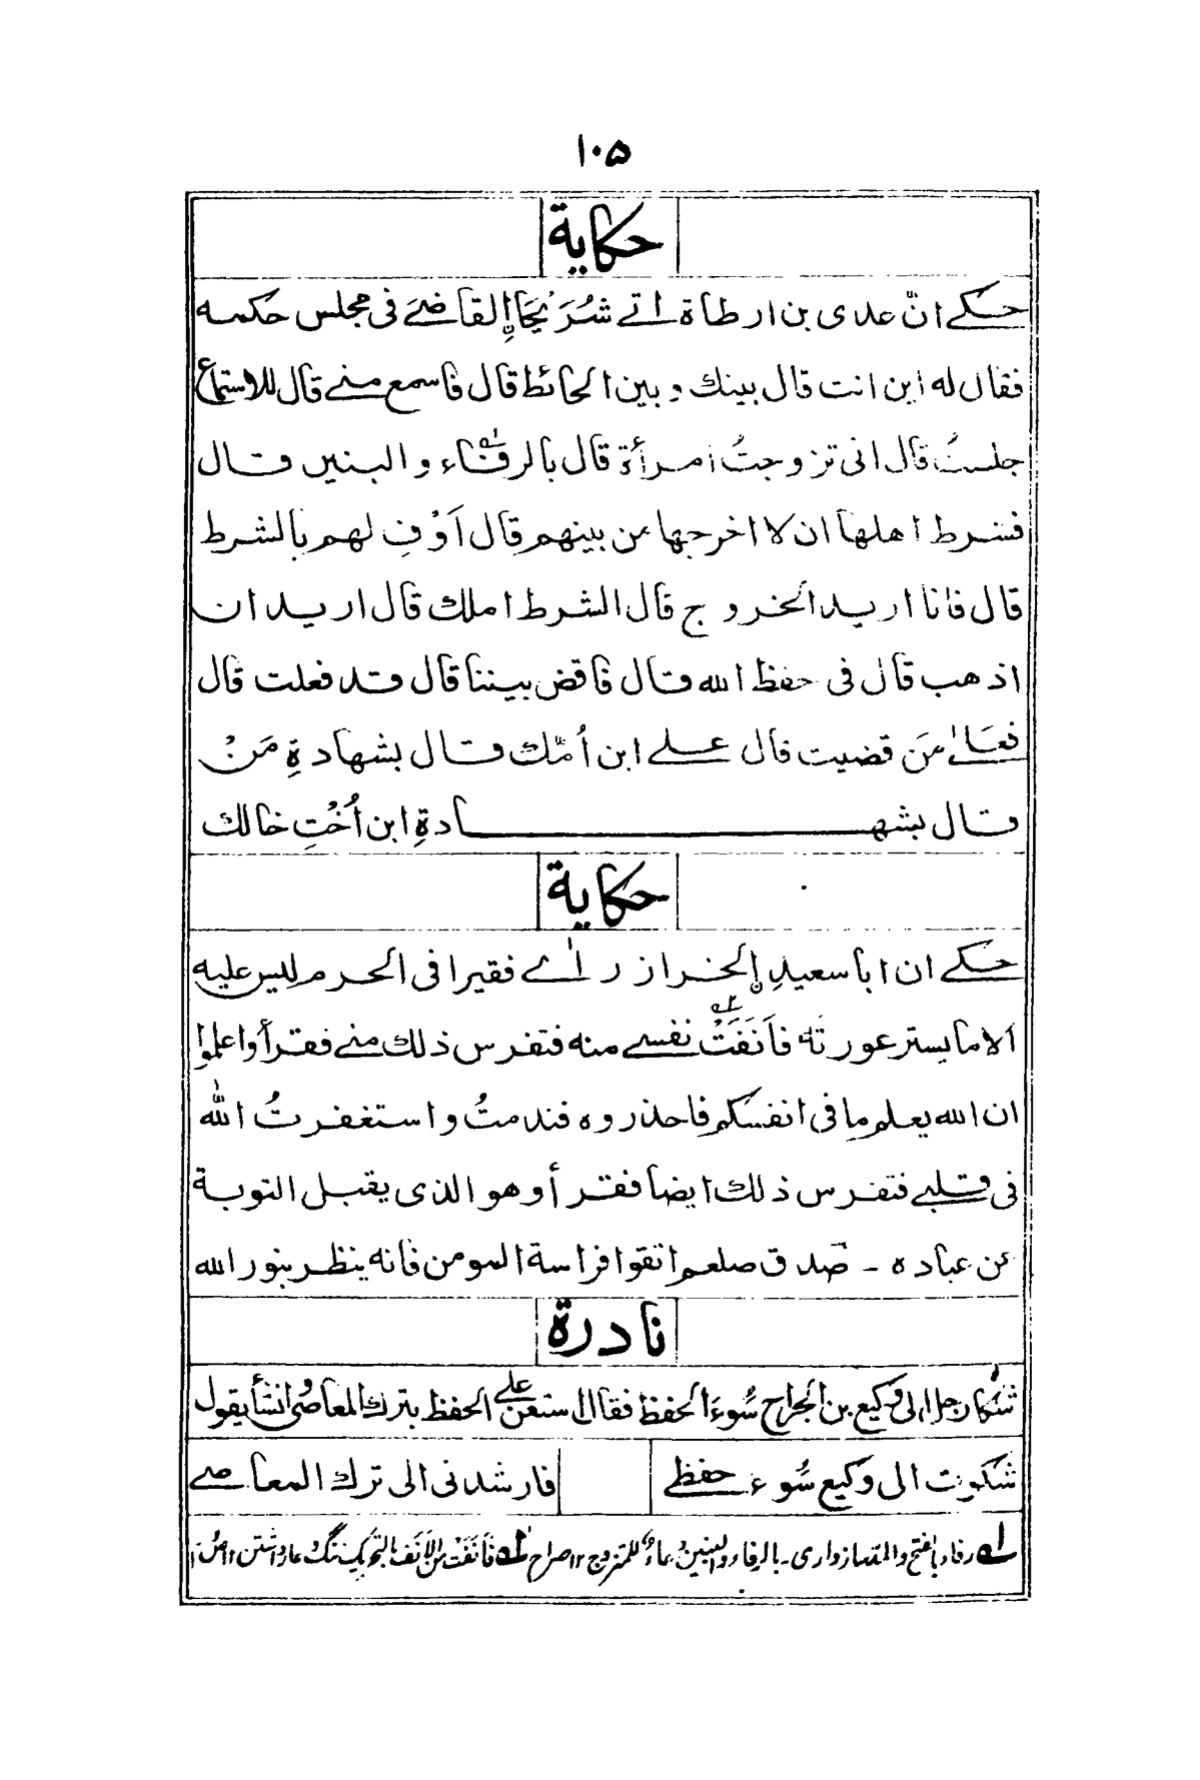 ۱۰۵
حكاية
حكے انّ عدى بن ارطاة اتے شُرَيْحَا القاضےَ فى مجلس حكمه
فقال له اين انت قال بينك و بين الحائط قال فاسمع منے قال للاستماع
جلستُ قال انى تزوجتُ امرأة قال بالرفاء والبنين قال
فشرط اهلها ان لا اخرجها من بينهم قال اَوْفِ لهم بالشرط
قال فانا اريد الخروج قال الشرط املك قال اريد ان
اذهب قال فى حفظ الله قال فاقض بيننا قال قد فعلت قال
فعلٰے مَن قضيت قال علے ابن اُمّك قال بشهادةِ مَنْ
قال بشهادةِ ابن اُخْتِ خالك
حكاية
حكے ان ابا سعيدِ الخراز راٰے فقيرا فى الحرم ليس عليه
الا ما يستر عورته فاَنَفَتْ نفسے منه فتفرس ذلك منے فقرأ واعلموا
ان الله يعلم ما فى انفسكم فاحذروه فندمتُ واستغفرتُ الله
فى قلبے فتفرس ذلك ايضا فقرأ وهو الذى يقبل التوبة
عن عباده ـ صدق صلعم اتقوا فراسة المومن فانه ينظر بنور الله
نادرة
شكا رجل الى وكيع بن الجراح سُوءَ الحفظ فقال استعن علے الحفظ بترك المعاصى وانشأ يقول
شكوت الى وكيع سُوء حفظے فارشدنى الى ترك المعاصے
لـه رفاء بالفتح والمد سازوارى ـ بالرفاء والبنين دعاء للمتزوج ۱۲ صراح لـه فَاَنَفَتْ من الاَنَف بالتحريك ننگ و عار داشتن ۱۲ ص